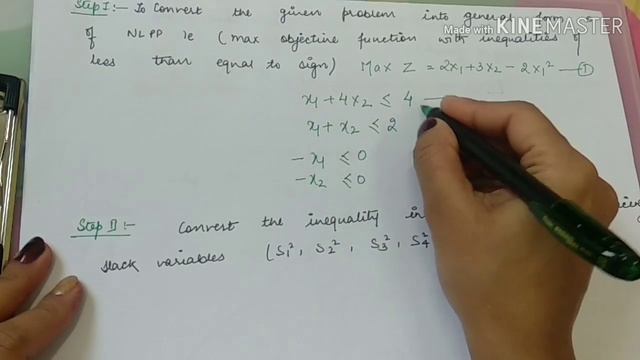 Made with KINEMASTER
Step I :- To Convert the given problem into general
of NLPP ie (max objective function with inequalities of
less than equal to sign) Max Z = 2x₁ + 3x₂ - 2x₁² — ①
x₁ + 4x₂ ≤ 4 —
x₁ + x₂ ≤ 2
- x₁ ≤ 0
- x₂ ≤ 0
Step II :- Convert the inequality
slack variables (S₁², S₂², S₃², S₄²